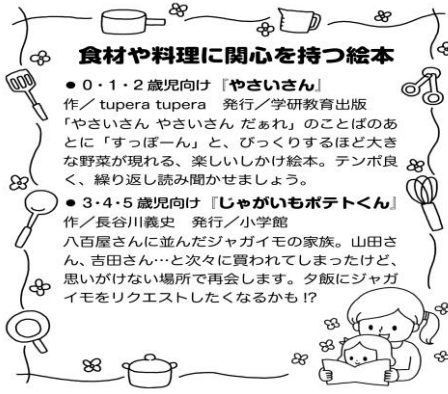 食材や料理に関心を持つ絵本
● 0・1・2歳児向け 『やさいさん』
作／tupera tupera 発行／学研教育出版
「やさいさん やさいさん だぁれ」のことばのあ
とに「すっぽーん」と、びっくりするほど大き
な野菜が現れる、楽しいしかけ絵本。テンポ良
く、繰り返し読み聞かせましょう。
● 3・4・5歳児向け 『じゃがいもポテトくん』
作／長谷川義史 発行／小学館
八百屋さんに並んだジャガイモの家族。山田さ
ん、吉田さん…と次々に買われてしまったけど、
思いがけない場所で再会します。夕飯にジャガ
イモをリクエストしたくなるかも!?